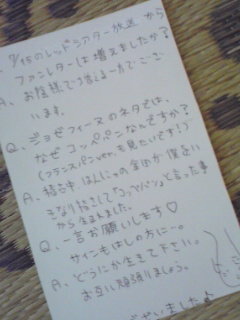 9/15のレッドシアター放送から
ファンレターは増えましたか?
A、お陰様で増える一方でござ
います。
Q、ジョゼフィーヌのネタでは、
なぜコッペパンなんですか?
(フランスパンver.も見たいです!)
A、稽古中はんにゃの金田が僕をい
きなり指さして「コッペパン」と言った事
から生まれました。
Q、一言お願いします♡
サインもはしの方に…。
A、どうにか生きて下さい。
お互い頑張りましょう。
ざいました